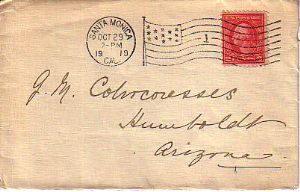 SANTA MONICA
OCT 29
2-PM
1919
CAL.
1
G. M. Colvocoresses
Humboldt
Arizona